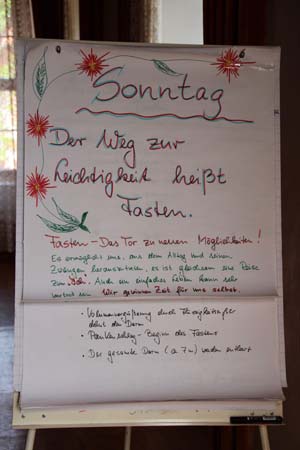 Sonntag
Der Weg zur
Leichtigkeit heißt
Fasten.
Fasten - Das Tor zu neuen Möglichkeiten!
Es ermöglicht uns, aus dem Alltag und seinen
Zwängen herauszutreten, es ist gleichsam eine Reise
zum "Ich". Auch ein einfaches Leben kann sehr
sein. Wir gewinnen Zeit für uns selbst.
• Volumenvergrößerung durch Flüssigkeit
dehnt den Darm
• Paukenschlag - Beginn des Fastens
• Der gesamte Darm (ca 7m) werden entleert